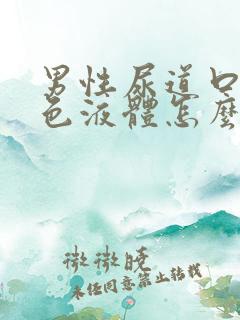 男性尿道口
色液體怎麼
微微晓
未经同意禁止转载